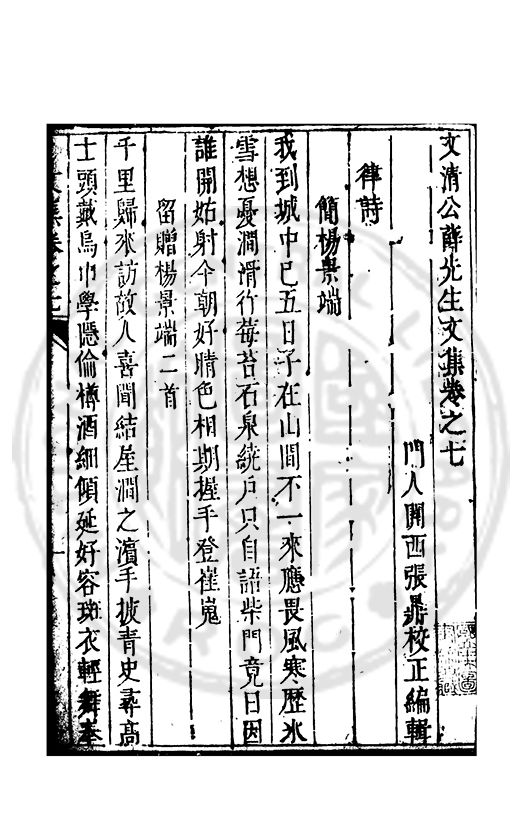 文清公薛先生文集卷之七
門人關西張鼎校正編輯
律詩
簡楊景端
我到城中已五日子在山間不一來應畏風寒歷氷
雪想憂澗滑行莓苔石泉繞戶只自語柴門竟日因
誰開姑射今朝好晴色相期握手登崔嵬
留贈楊景端二首
千里歸來訪故人喜聞結屋澗之濱手披青史尋高
士頭戴烏巾學隱倫樽酒細傾延好容斑衣輕舞奉
文集卷之七